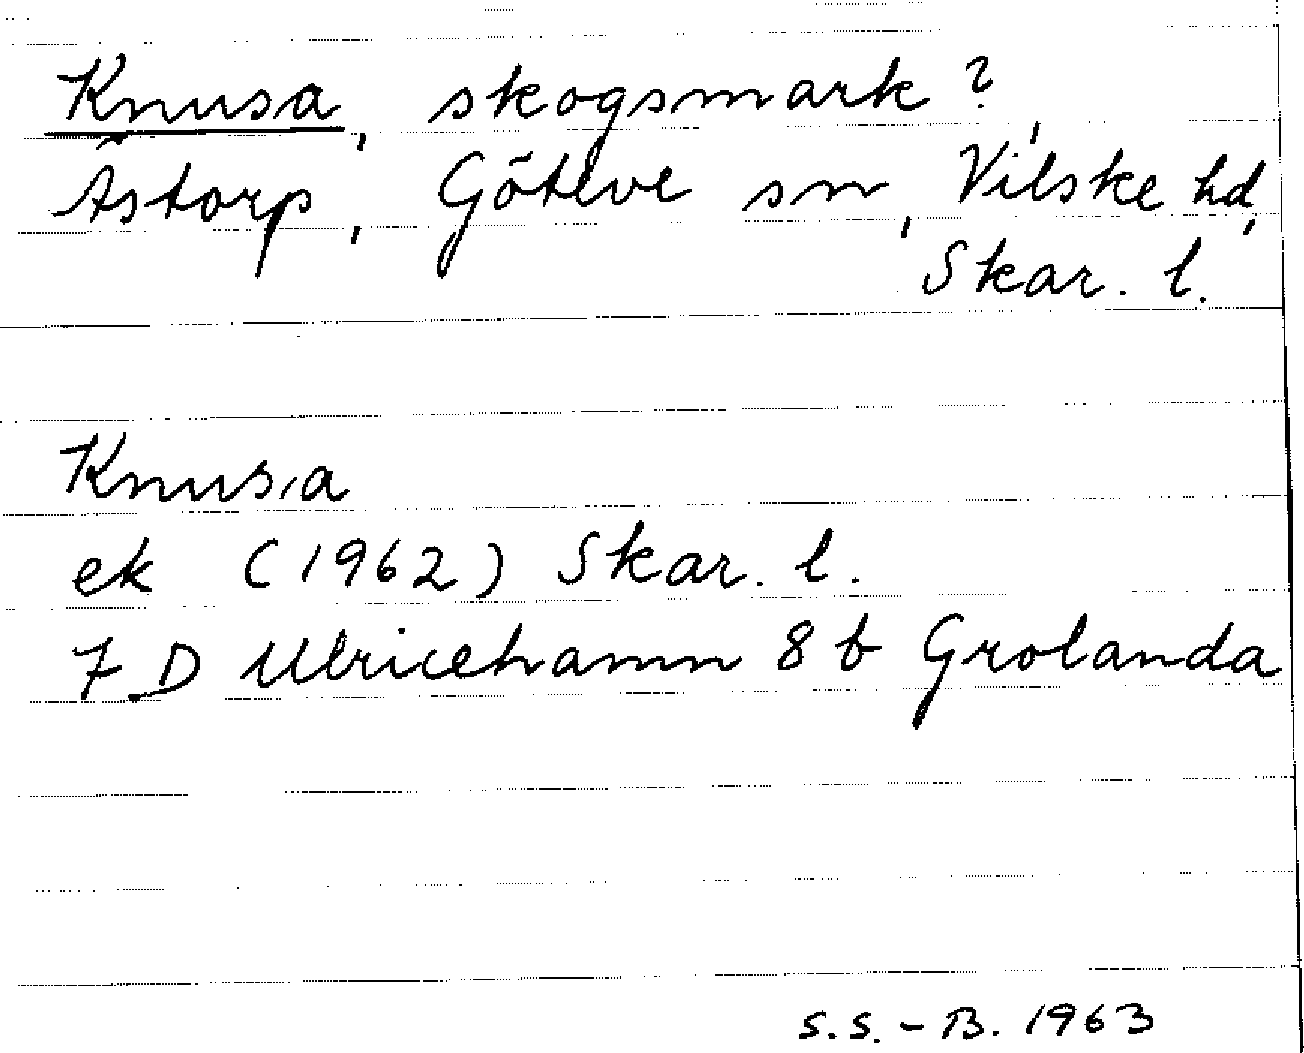 Knusa, skogsmark?
Åstorp, Göteve sn, Vilske hd,
Skar. l.
Knusa
ek (1962) Skar. l.
7 D Ulricehamn 8 b Grolanda
S.S.-B. 1963